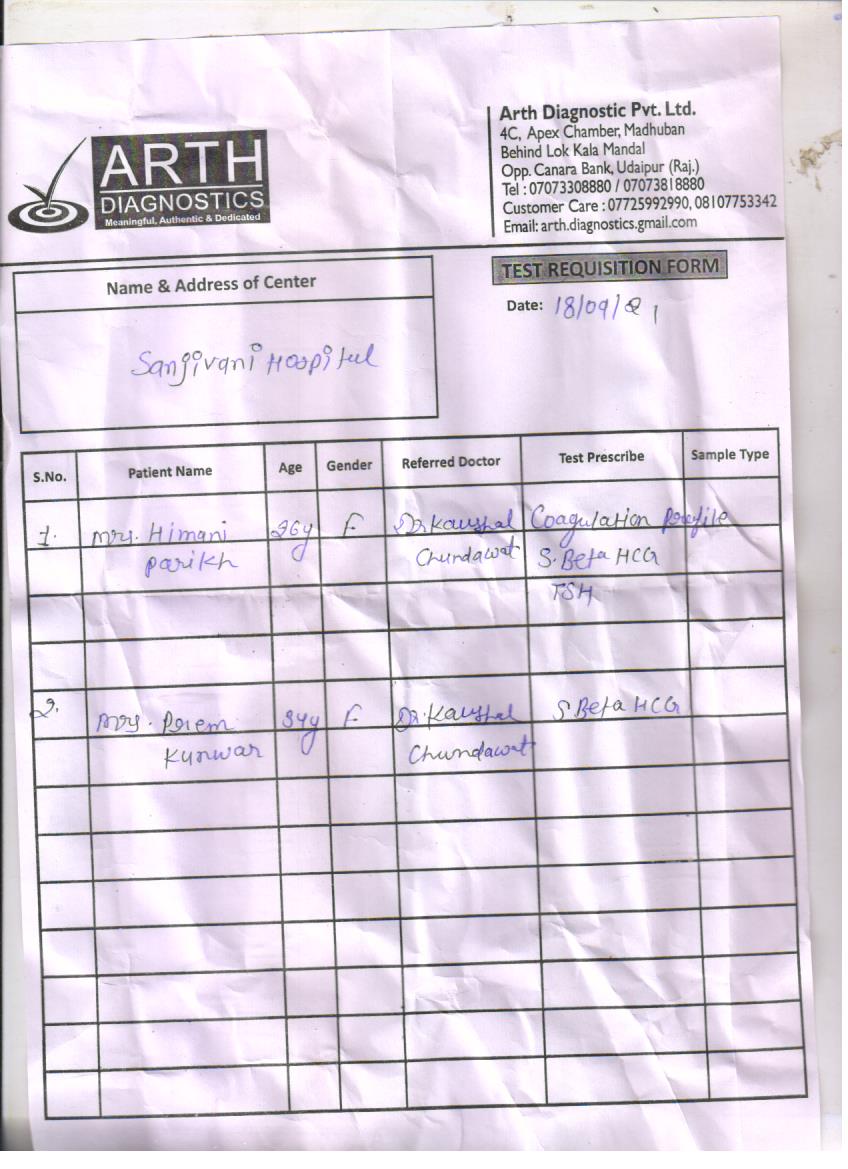 ARTH
DIAGNOSTICS
Meaningful, Authentic & Dedicated
Arth Diagnostic Pvt. Ltd.
4C, Apex Chamber, Madhuban
Behind Lok Kala Mandal
Opp. Canara Bank, Udaipur (Raj.)
Tel : 07073308880 / 07073818880
Customer Care : 07725992990, 08107753342
Email: arth.diagnostics.gmail.com
Name & Address of Center
TEST REQUISITION FORM
Date: 18/09/21
Sanjivani Hospital
S.No. Patient Name Age Gender Referred Doctor Test Prescribe Sample Type
1. Mrs. Himani 26y F Dr Kaushal Coagulation Profile
Parikh Chundawat S. Beta HCG
TSH
2. Mrs. Prem 34y F Dr. Kaushal S Beta HCG
Kunwar Chundawat